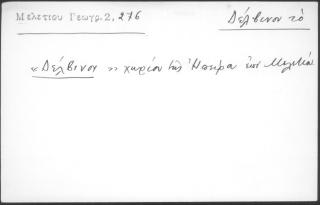 Μελετίου Γεωγρ.2, 276
Δέλβινον τό
«Δέλβινον» χωρίον τῆς Ἠπείρου ἐπὶ Μελετίου